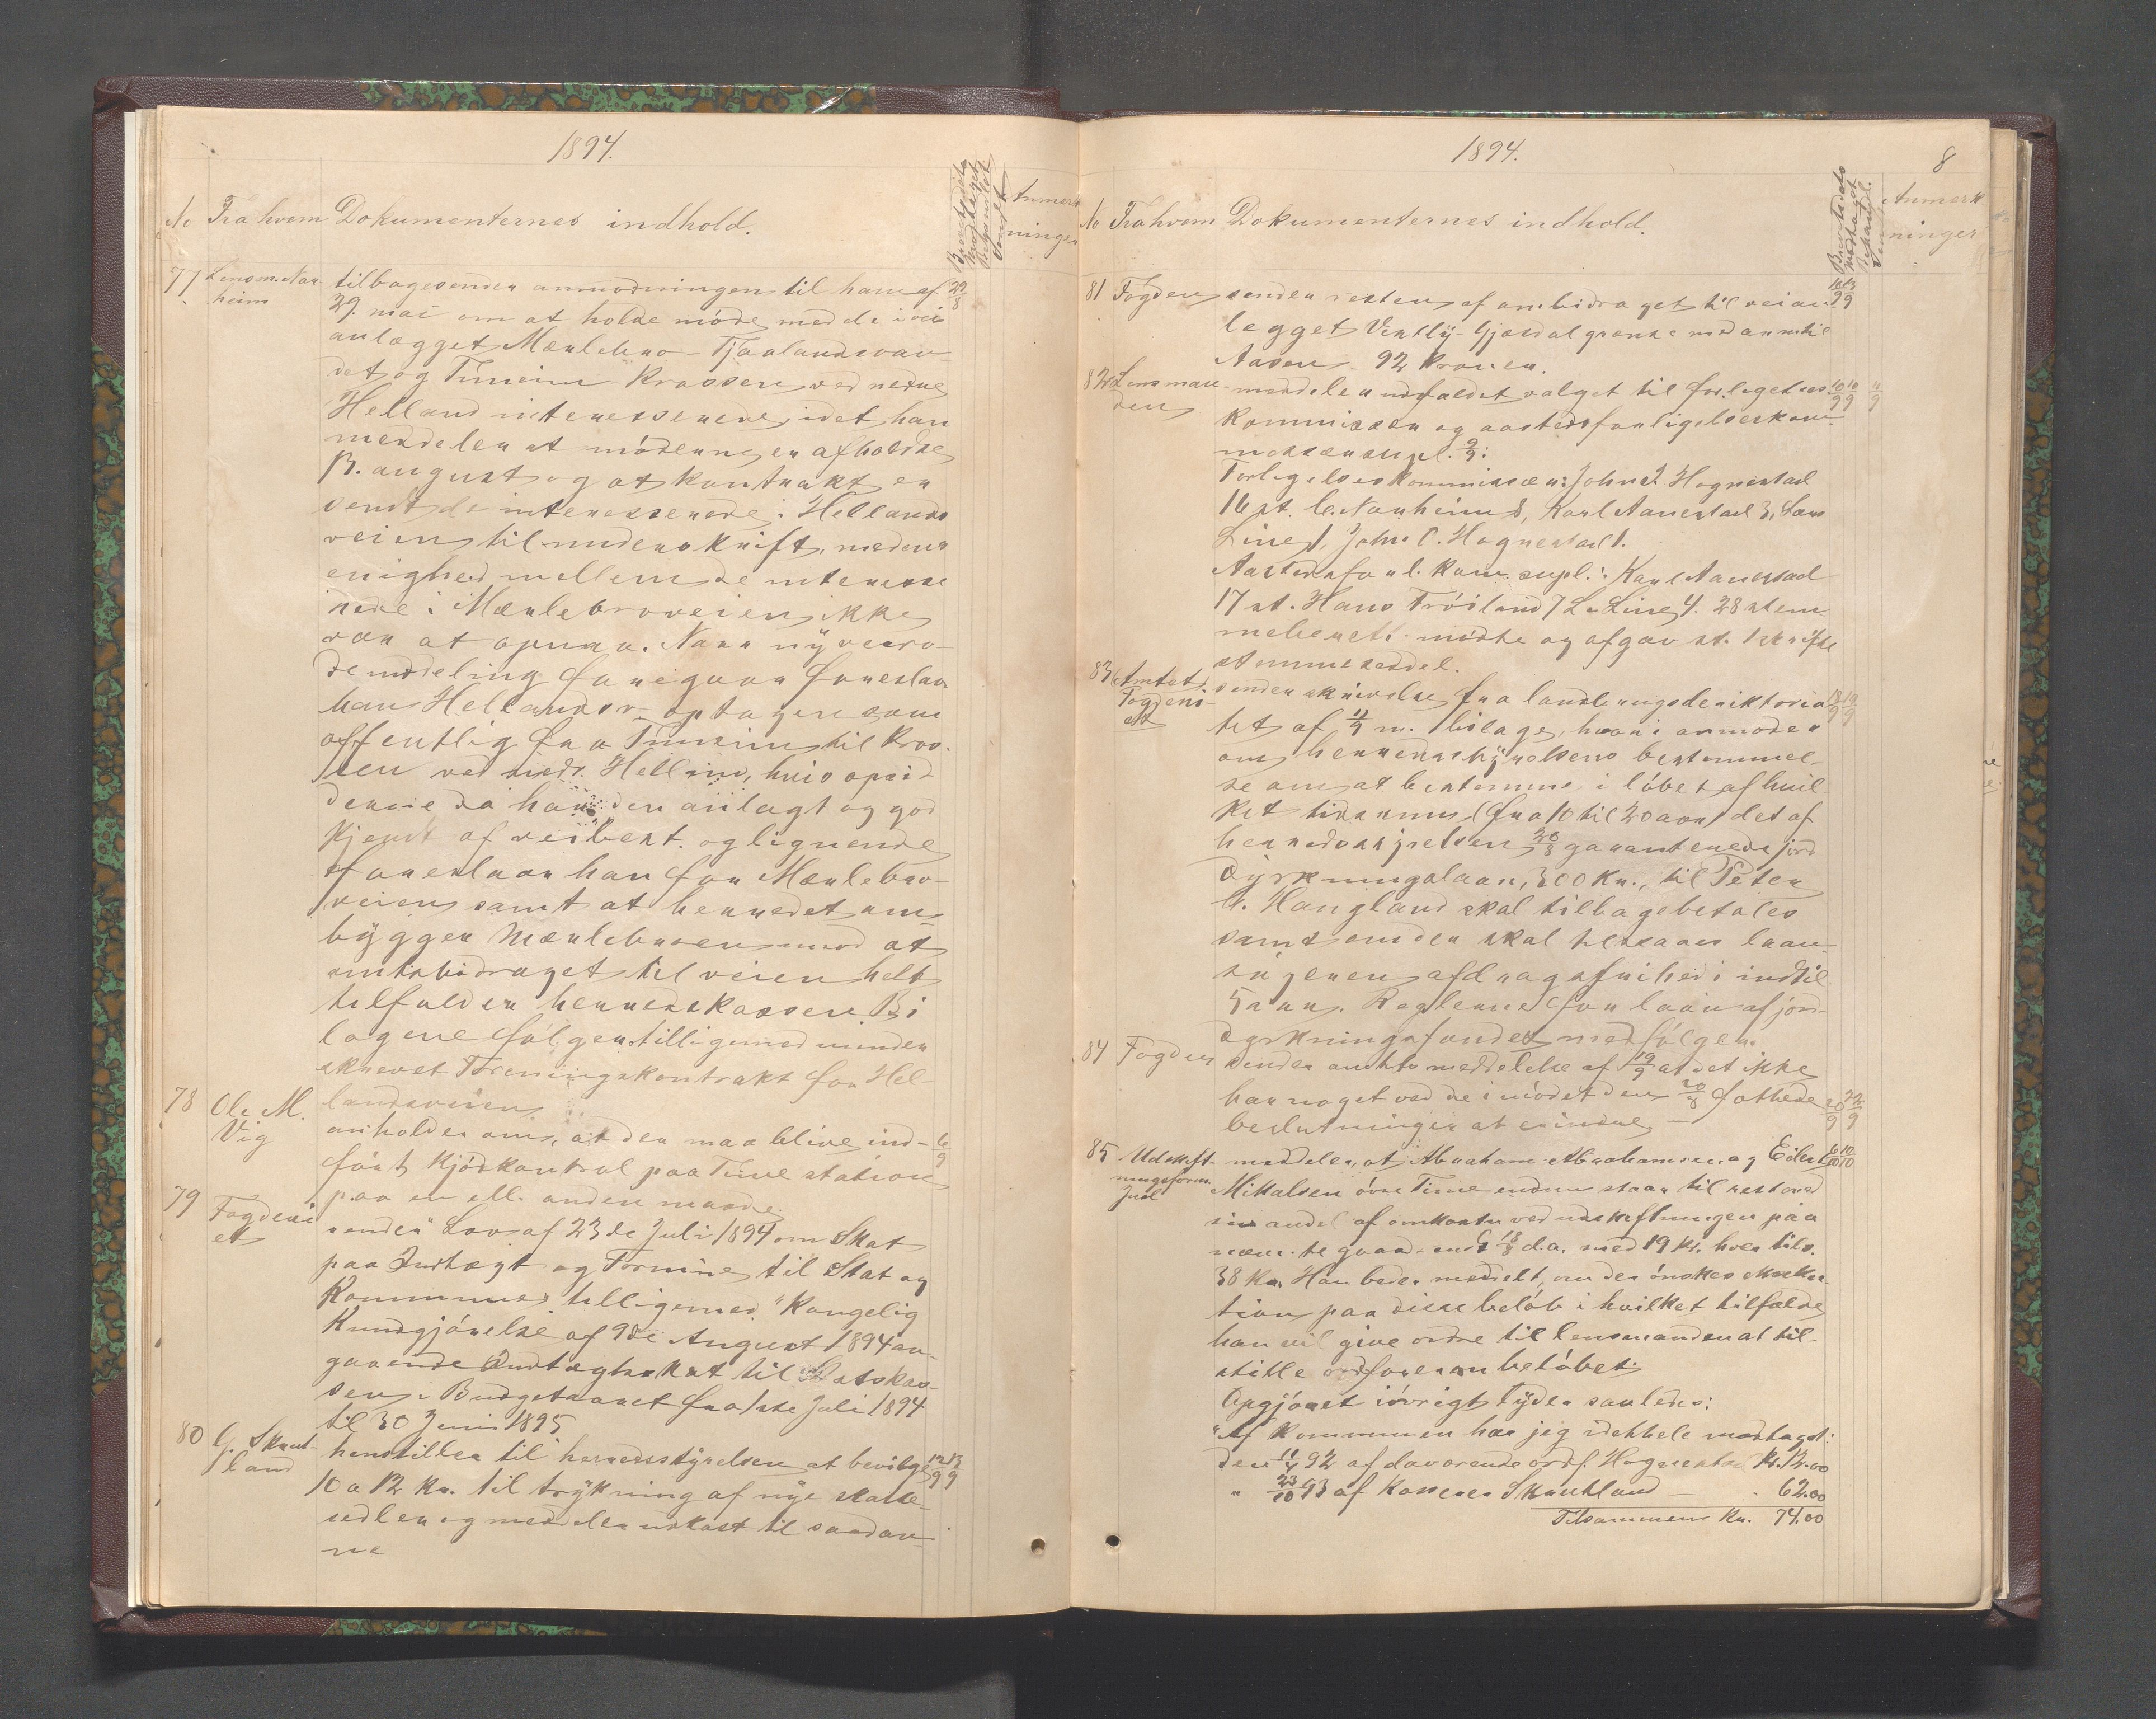 1894.
No Fra hvem Dokumenternes indhold.
Anmerk
ninger
77 Lensm. Nar-
heim
tilbagesender anmodningen til ham af 29/8
29. mai om at holde møde med de i vei
anlægget Mænlebro - Tjaalandsvan-
det og Timeim Krossen ved nedre
Helland interesserede, idet han
meddeler at møderne er afholdte
13. august og at kontrakt er
sendt de interesserede i Hellands
veien til underskrift, medens
enighed mellem de interesse
rede i Mænlebroveien ikke
var at opnaa. Naar ny veiro-
demddeling foregaar foreslaar
han Hellandsv. optagen som
offentlig fra Timeim til Kros-
sen ved nedr. Helland, hvis opsid-
derne da har den anlagt og god
kjendt af veibest. og lignende
foreslaar han for Mænlebro-
veien samt at herredet om-
bygger Mænlebroen mod at
amtsbidraget til veien helt
tilfalder herredskassen. Bi
lagene følger tilligemed under
skrevet Foreningskontrakt for Hel-
landsveien.
78 Ole M.
Vig
anholder om, at der maa blive ind- 6/9
ført kjødkontrol paa Time station
paa en ell. anden maade.
79 Fogderi
et
sender "Lov af 23de Juli 1894 om Skat
paa Indtægt og Formue til Stat og
Kommune, tilligemed "Kongelig
Kundgjørelse af 9de August 1894 an-
gaaende Indtægtsskat til Statskas-
sen i Budgetaaret fra 1ste Juli 1894
til 30 Juni 1895
80 G. Skret-
land
henstiller til herredsstyrelsen at bevilge 12/9 12/9
10 a 12 Kr. til trykning af nye skatte-
sedler og meddeler udkast til saadan-
ne
1894.
8
No Fra hvem Dokumenternes indhold.
Anmerk
ninger
81 Fogden sender resten af amtsbidraget til veian
legget Vestly - Gjesdal grense med arm til
Aasen - 92 kroner.
82 Lensman-
den
meddeler udfaldet valget til forligelses- 10/9 10/9 11/9
kommissær og aastedsforligelseskom-
missærsupl. 9/9:
Forligelseskommissær: John J. Hognestad
16 st. C. Narheim 8, Karl Aanestad 3, Lars
Line 1, John C. Hognestad 1.
Aastedsforl. kom. supl.: Karl Aanestad
17 st. Hans Trøiland 7 L. Line 4. 28 stem
meberett. mødte og afgav st. 1 skrifte
stemmeseddel.
83 Amtet
Fogderi-
et
sender skrivelse fra landbrugsdirektoria
tet af 11/9 m. bilage, hvori anmodes
om herredsstyrelsens bestemmel-
se om at bestemme i løbet af hvil-
ket tidsrum (fra 10 til 20 aar) det af
herredsstyrelsen 20/8 garanterede jord
dyrkningslaan, 300 Kr., til Peter
G. Haugland skal tilbagebetales
samt om der skal tilstaaes laan-
søgeren afdragsfrihed i indtil
5 aar. Reglerne for laan af jord-
dyrkningsfondet medfølger.
84 Fogden sender amtets meddelelse af 19/9 at det ikke
har noget ved de i mødet den 20/8 fattede 20/9 22/9
beslutninger at erindre. -
85 Udskift-
ningsform.
Juel
meddeler, at Abraham Abrahamsen og Eilert 6/10 10/10
Mikalsen øvre Time endnu staar til rest med
sin andel af omkostn. ved udskiftningen paa
næv.te gaard 18/8 d.a. med 19 kr. hver tils.
38 Kr. Han beder meddelt, om der ønskes ekseku-
tion paa disse beløb i hvilket tilfælde
han vil give ordre til lensmanden at til-
stille ordføreren beløbet.
Opgjøret iøvrigt lyder saaledes:
"Af kommunen har jeg idethele modtaget:
den 11/4 92 af davarende ordf. Hognestad Kr. 12.00
" 23/10 93 af kasserer Skretland - - 62.00
Tilsammen Kr. 74.00